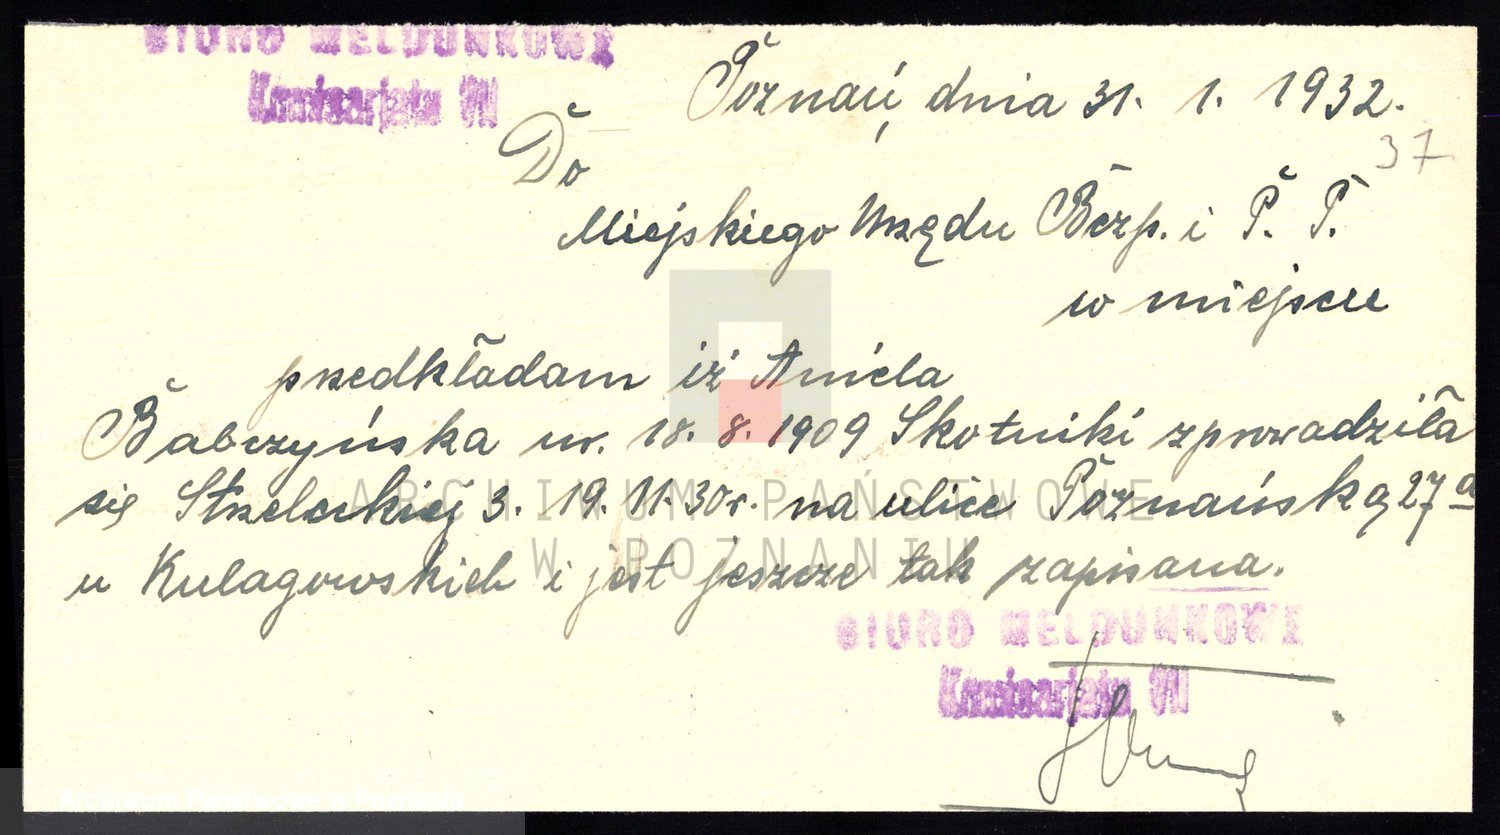 BIURO MELDUNKOWE
Komisarjatu VII
Poznań, dnia 31. 1. 1932.
37
Do
Miejskiego Urzędu Bezp. i P. P.
w miejscu
przedkładam iż Aniela
Babczyńska ur. 18. 8. 1909 Skotniki zprowadziła
się Strzeleckiej 3. 19. 11. 30 r. na ulice Poznańską 27a
u Kulagowskich i jest jeszcze tak zapisana.
BIURO MELDUNKOWE
Komisarjatu VII
ARCHIWUM PAŃSTWOWE
W POZNANIU
Archiwum Państwowe w Poznaniu